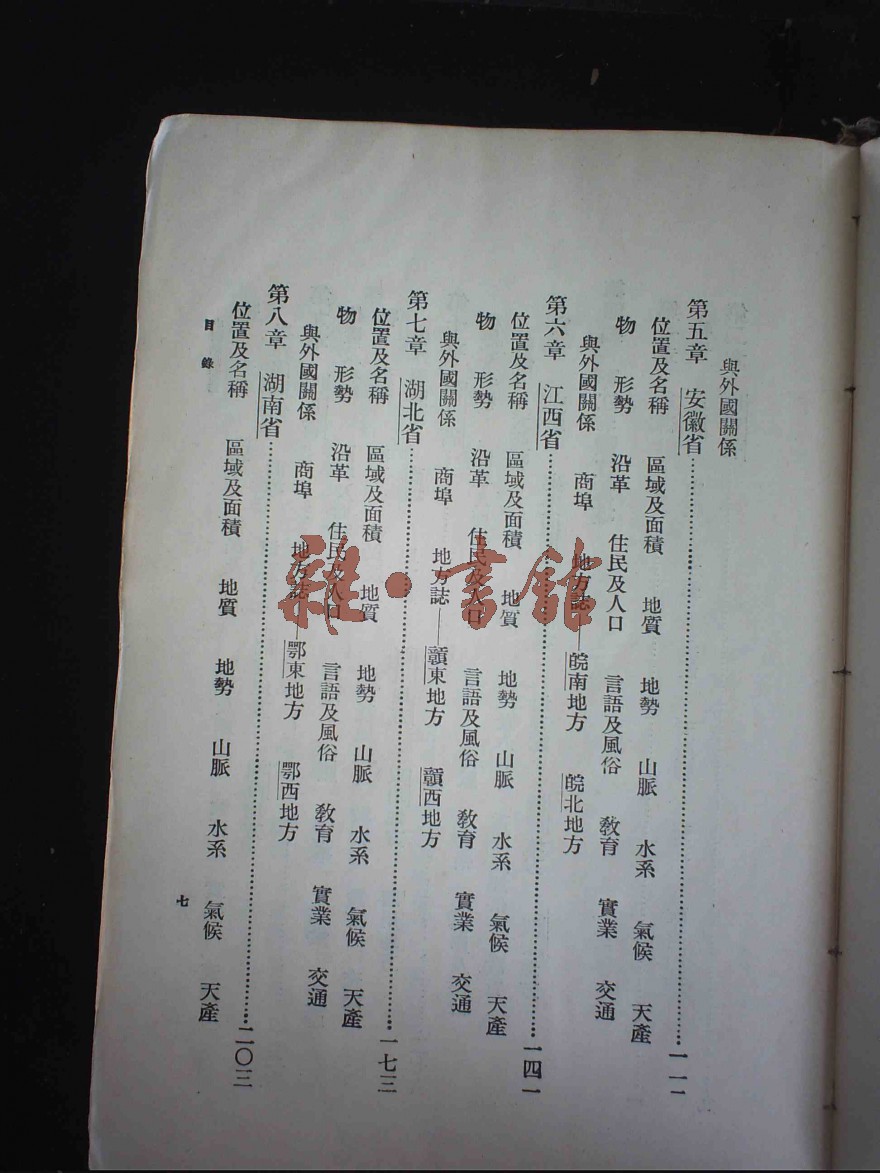 與外國關係
第五章 安徽省……一一一
位置及名稱 區域及面積 地質 地勢 山脈 水系 氣候 天產
物 形勢 沿革 住民及人口 言語及風俗 教育 實業 交通
與外國關係 商埠 地方誌——皖南地方 皖北地方
第六章 江西省……一四一
位置及名稱 區域及面積 地質 地勢 山脈 水系 氣候 天產
物 形勢 沿革 住民及人口 言語及風俗 教育 實業 交通
與外國關係 商埠 地方誌——贛東地方 贛西地方
第七章 湖北省……一七三
位置及名稱 區域及面積 地質 地勢 山脈 水系 氣候 天產
物 形勢 沿革 住民及人口 言語及風俗 教育 實業 交通
與外國關係 商埠 地方誌——鄂東地方 鄂西地方
第八章 湖南省……二〇三
位置及名稱 區域及面積 地質 地勢 山脈 水系 氣候 天產
目錄
七
雜·書館